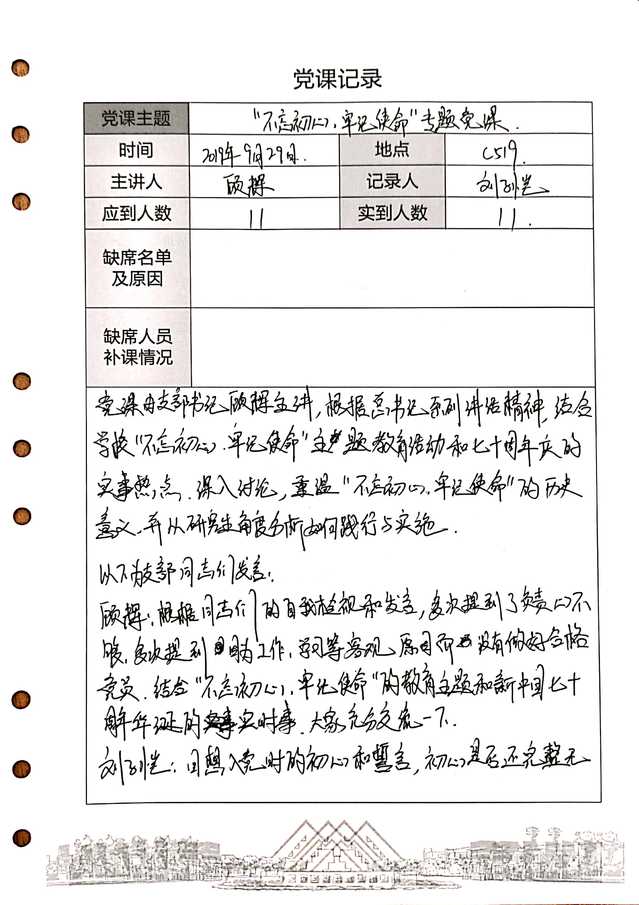 党课记录
党课主题 "不忘初心、牢记使命"专题党课.
时间 2019年9月29日. 地点 C519.
主讲人 顾辉 记录人
应到人数 11 实到人数 11.
缺席名单
及原因
缺席人员
补课情况
党课由支部书记顾辉主讲,根据总书记系列讲话精神,结合
学校"不忘初心、牢记使命"主题教育活动和七十周年庆的
实事热点.深入讨论,重温"不忘初心,牢记使命"的历史
意义.并从研究生角度分析如何践行与实施.
以下为支部同志们发言:
顾辉:根据同志们的自我检视和发言,多次提到了负责心不
够,多次提到因为工作、学习等客观原因而没有做好合格
党员.结合"不忘初心,牢记使命"的教育主题和新中国七十
周年的实时事.大家充分交流一下.
回想入党时的初心和誓言,初心是否还完整无